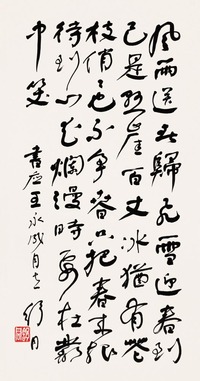 風雨送春歸飛雪迎春到
已是懸崖百丈冰猶有花
枝俏々也不争春只把春來報
待到山花爛漫時她在叢
中笑
書應王永成同志 舒同